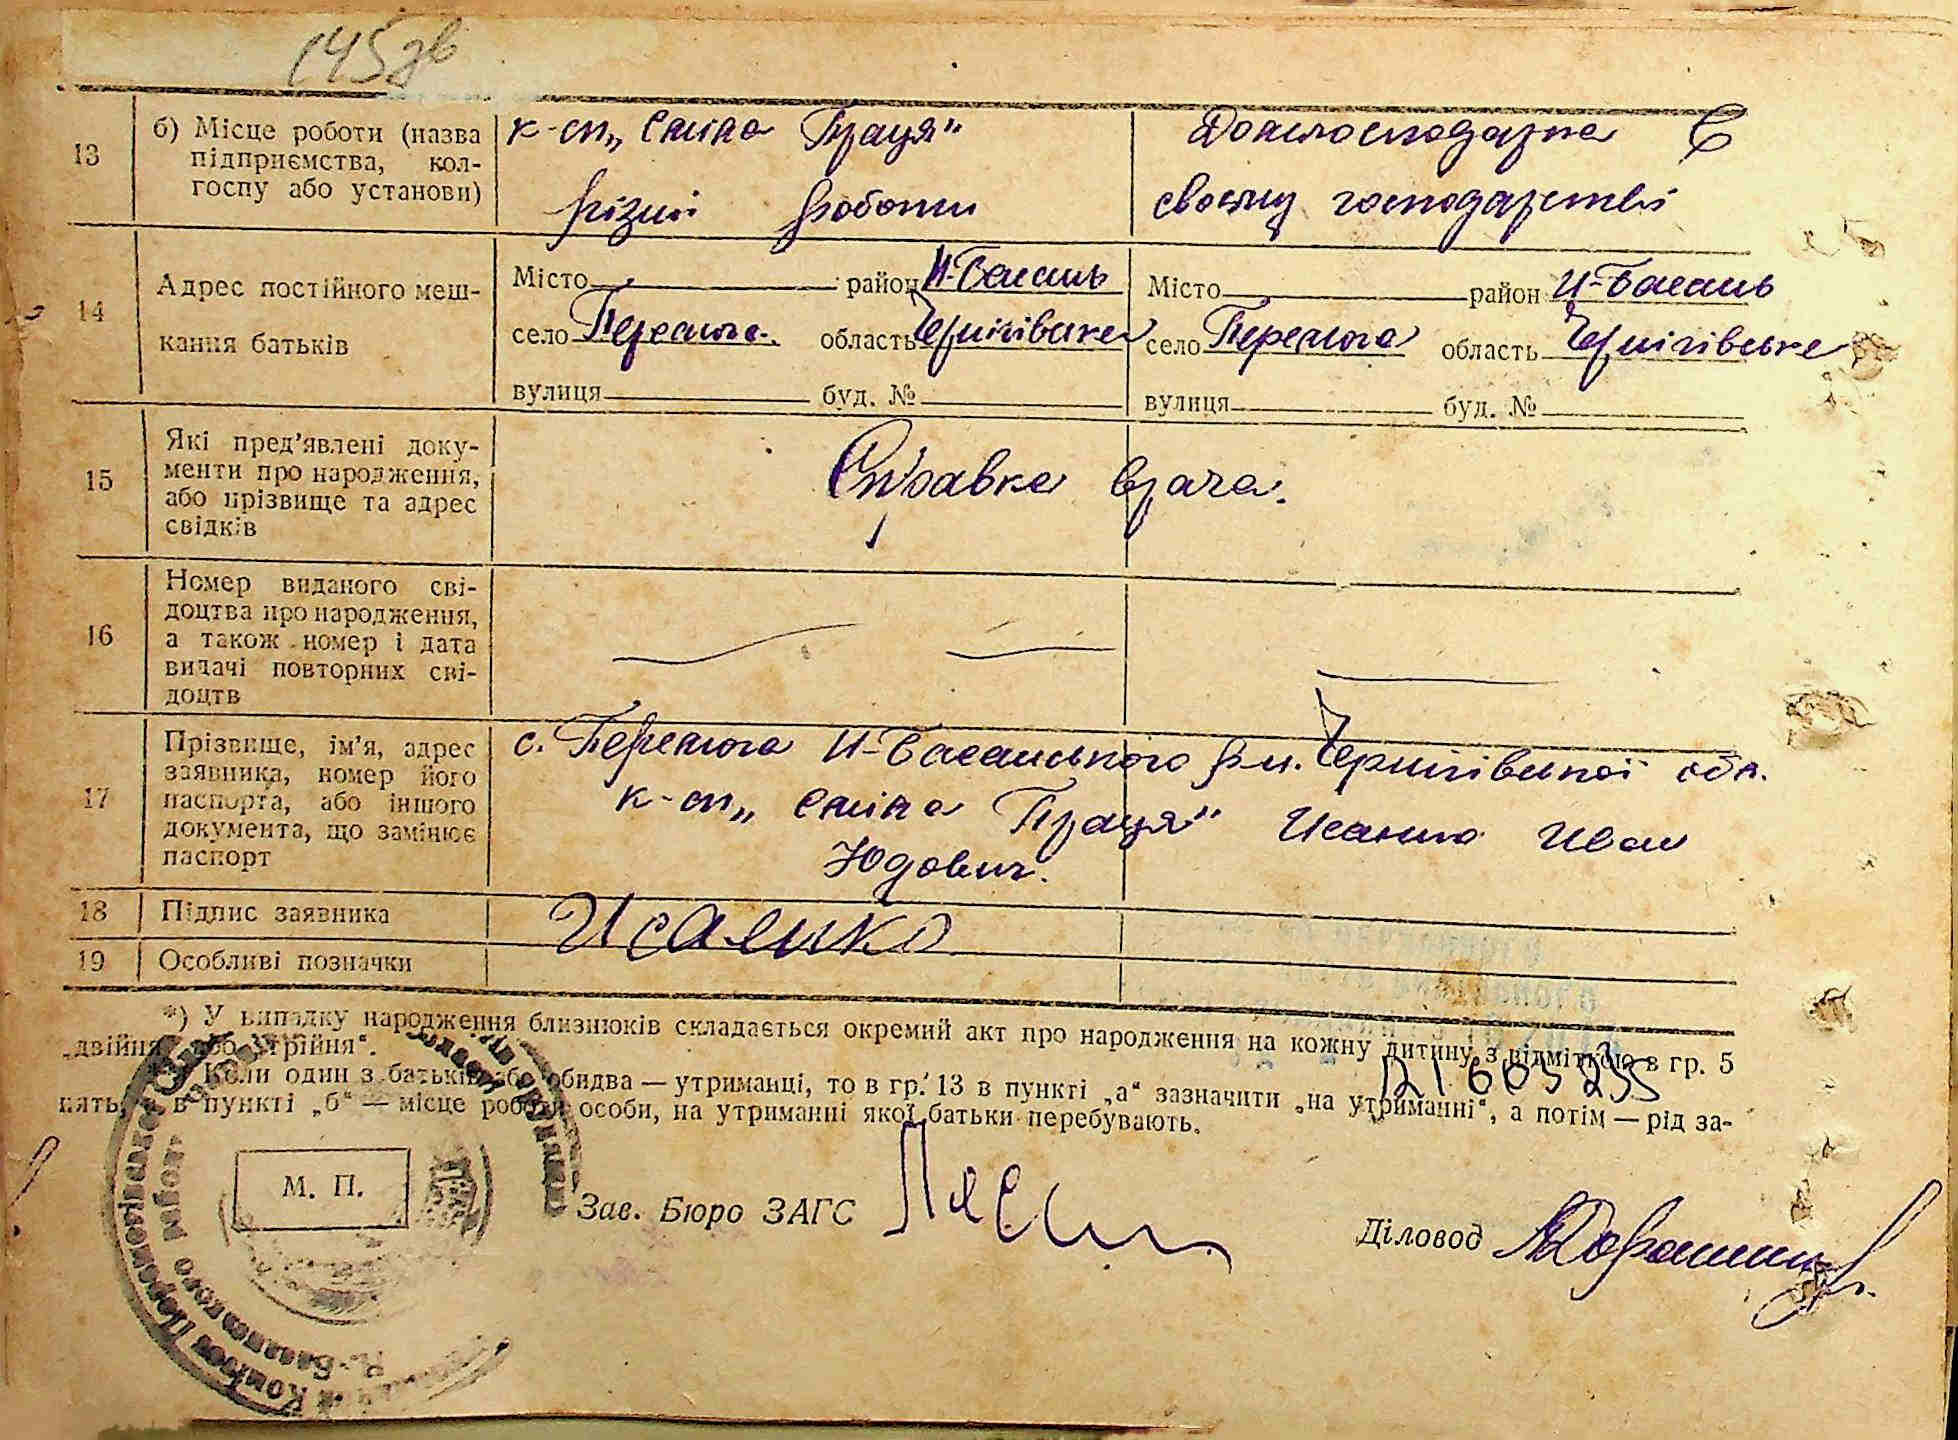 145зв
13 б) Місце роботи (назва
підприємства, кол-
госпу або установи)
к-сп „Спільна Праця"
різні роботи
Домогосподарка в
своєму господарстві
14 Адрес постійного меш-
кання батьків
Місто район Н-Басань
село Перемога область Чернігівська
вулиця буд. №
Місто район Н-Басань
село Перемога область Чернігівська
вулиця буд. №
15 Які пред'явлені доку-
менти про народження,
або прізвище та адрес
свідків
Справка врача.
16 Номер виданого сві-
доцтва про народження,
а також номер і дата
видачі повторних сві-
доцтв
17 Прізвище, ім'я, адрес
заявника, номер його
паспорта, або іншого
документа, що замінює
паспорт
с. Перемога Н-Басанського р-н. Чернігівської обл.
к-сп „ Праця" Исанко Иван
Юдович.
18 Підпис заявника
Исаенко
19 Особливі позначки
*) У випадку народження близнюків складається окремий акт про народження на кожну дитину з відміткою в гр. 5
„двійня" або „трійня".
Коли один з батьків або обидва — утриманці, то в гр. 13 в пункті „а" зазначити „на утриманні", а потім — рід за-
нять, а в пункті „б" — місце роботи особи, на утриманні якої батьки перебувають.
М. П.
Зав. Бюро ЗАГС
Діловод